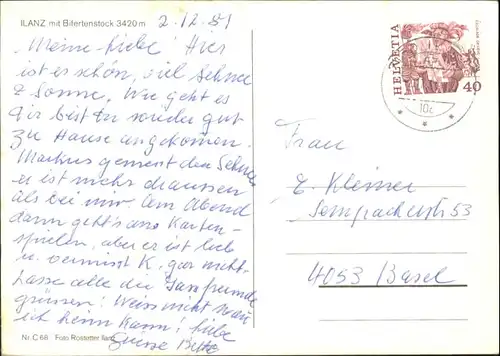 ILANZ mit Bifertenstock 3420 m
2.12.81
Meine Liebe! Hier
ist es schön, viel Schnee
& Sonne. Wie geht es
Dir bist Du wieder gut
zu Hause angekommen.
Markus geniesst den Schnee
er ist mehr draussen
als bei mir. Am Abend
dann geht's ans Karten-
spielen, aber er ist lieb
u. vermisst K. gar nicht.
Lasse alle die
grüssen! Weiss nicht wann
ich heim kann! Liebe
Grüsse
Nr. C 68 Foto Rostetter Ilanz
HELVETIA
40
Frau
E. Kleiner
Sempacherstr. 53
4053 Basel